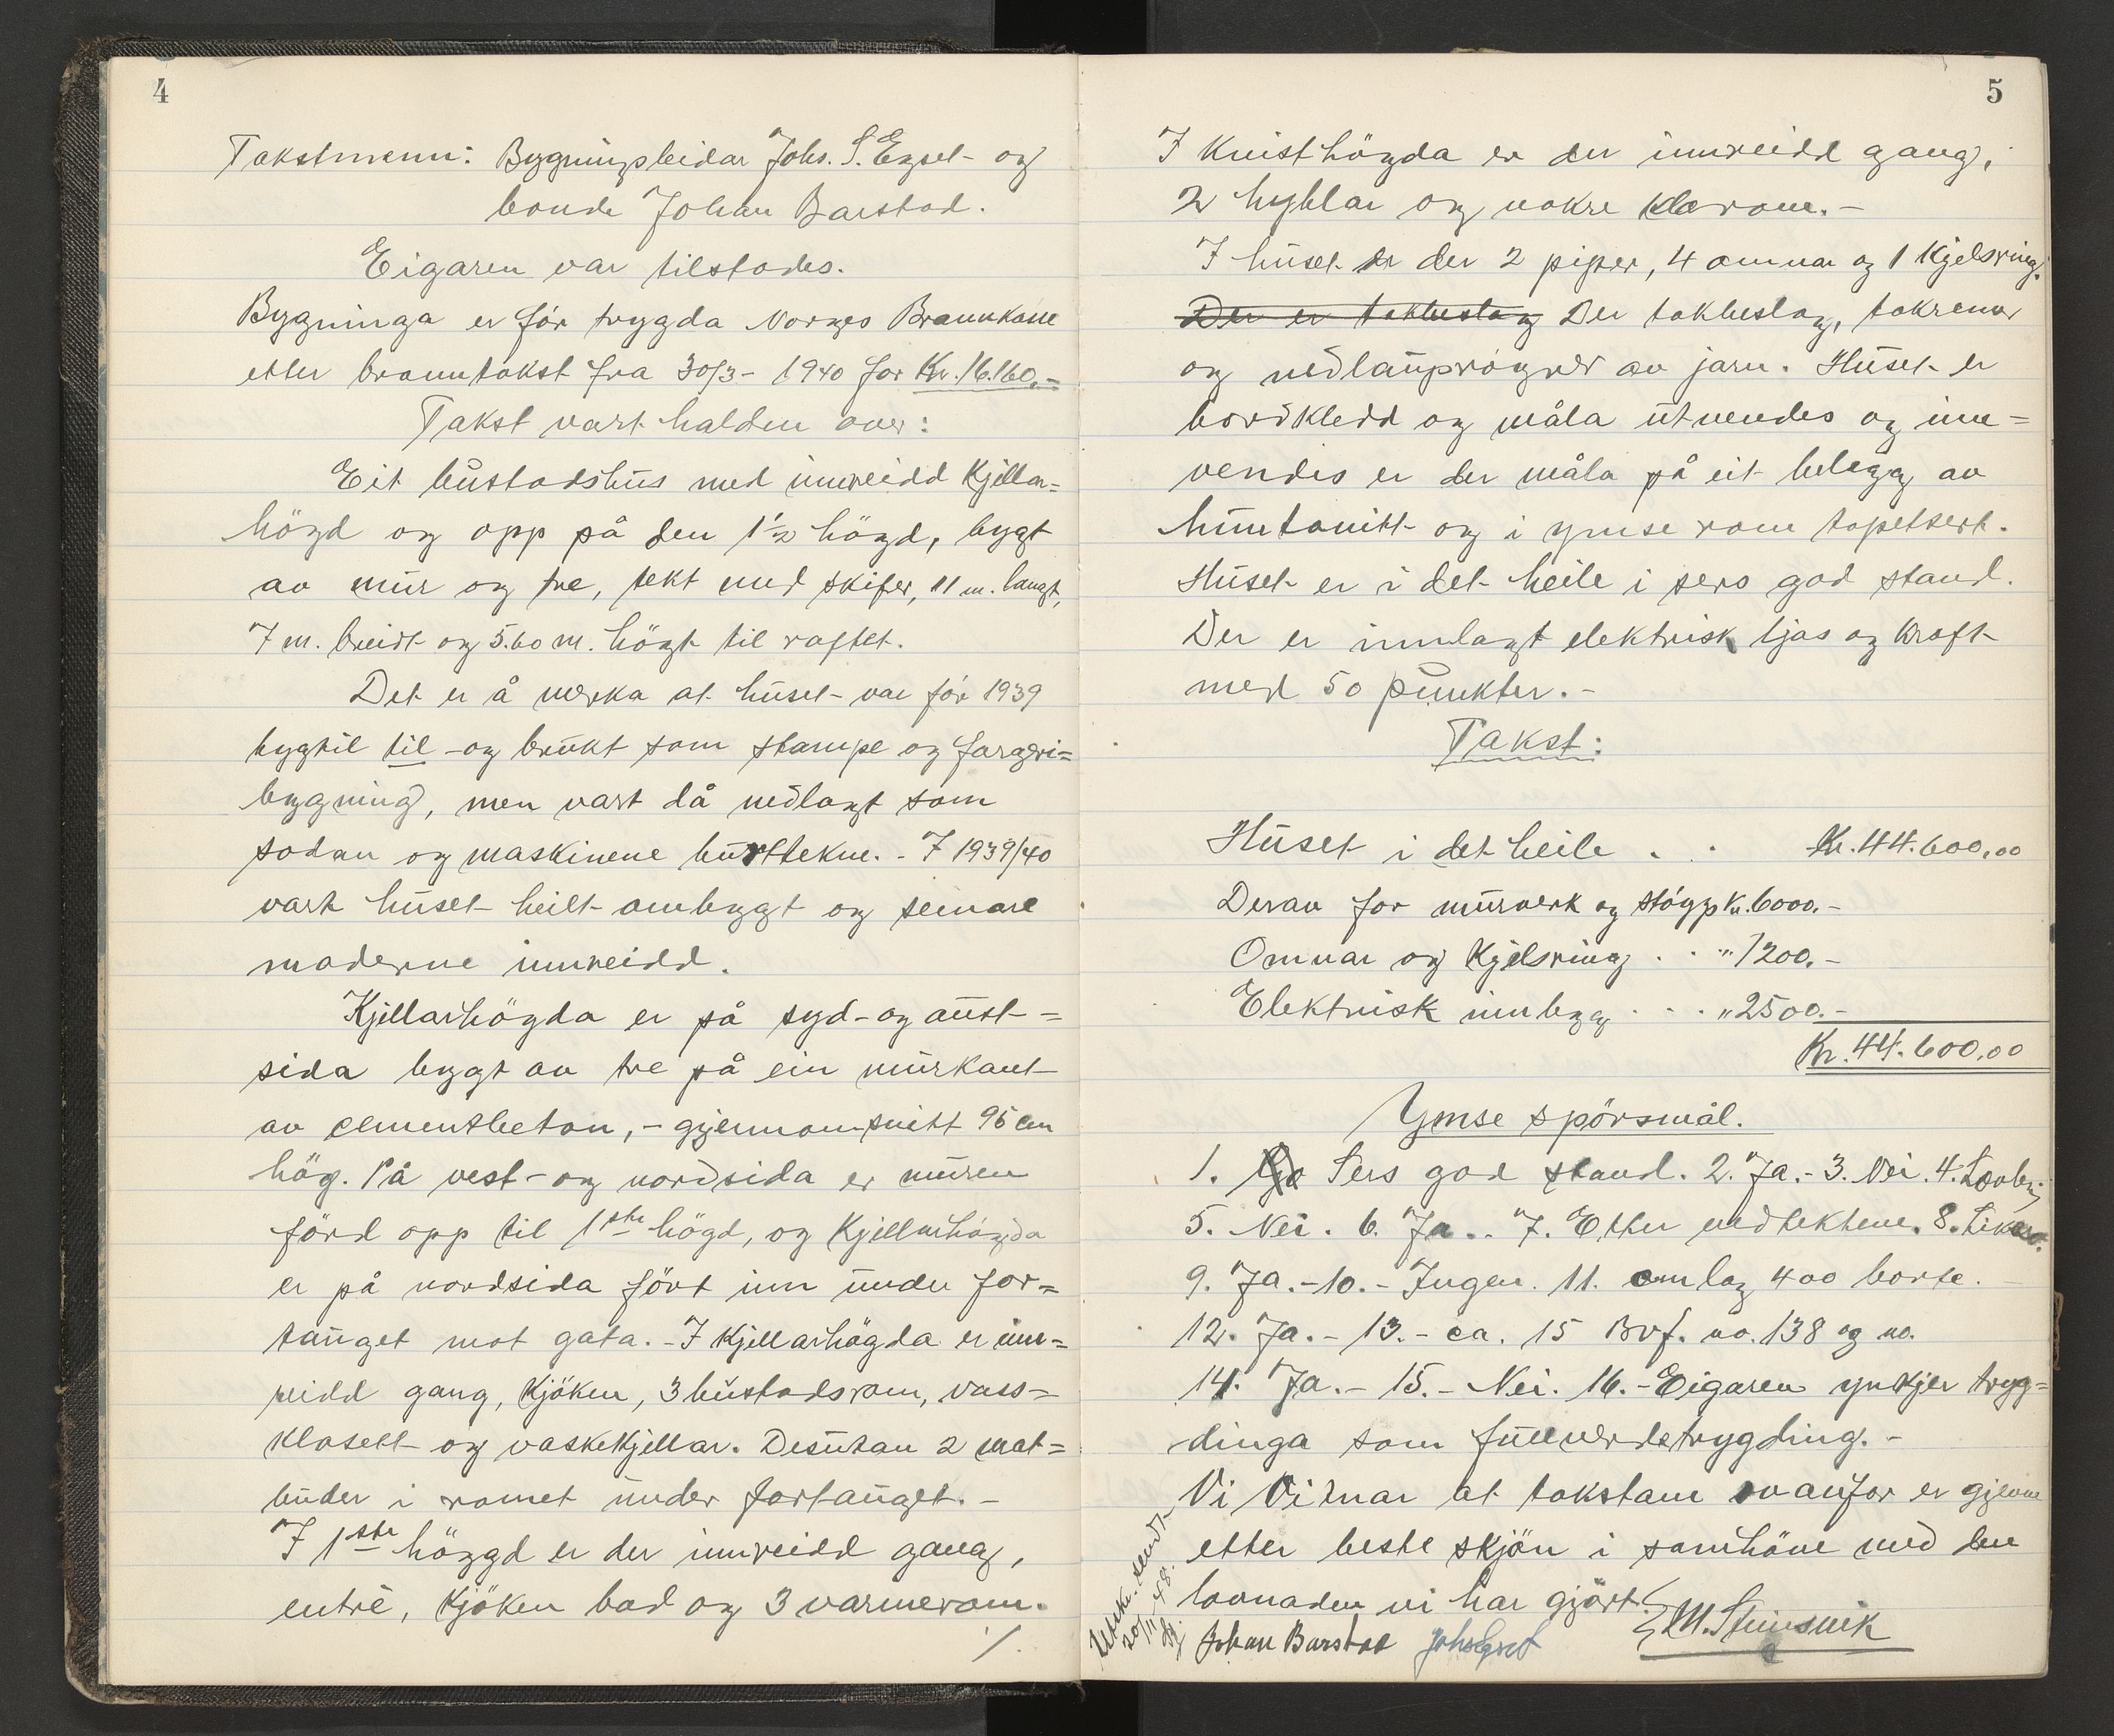 4
Takstmenn: Bygningsleidar Johs. S. Egset og
bonde Johan Barstad.
Eigaren var tilstades.
Bygninga er før trygda Norges Brannkasse
etter branntakst fra 30/3- 1940 for Kr. 16.160.-
Takst vart halden over:
Eit bustadshus med innreidd Kjellar=
högd og opp på den 1 1/2 högd, bygt
av mur og tre, tekt med skifer, 11 m. langt,
7 m. breidt og 5.60 m. högt til raftet.
Det er å merka at huset var før 1939
bygtil til - og brukt som stampe og fargeri=
bygning, men vart då nedlagt som
sodan og maskinene burttekne. - I 1939/40
vart huset heilt ombygt og seinare
moderne innreidd.
Kjellarhögda er på syd- og aust=
sida bygt av tre på ein murkant
av cementbeton, - gjennomsnitt 95 cm
hög. På vest- og nordsida er muren
förd opp til 1ste högd, og Kjellarhögda
er på nordsida fört inn under for=
tauget mot gata. - I Kjellarhögda er inn=
reidd gang, Kjöken, 3 bustadsrom, vass=
klosett og vaskekjellar. Desutan 2 mat=
buder i romet under fortauget. -
I 1ste högd er der innreidd gang,
entrè, Kjöken bad og 3 varmerom.
./.
5
I Kvisthögda er der innreidd gang,
2 hyblar og nokre klærom. -
I huset er der 2 piper, 4 omnar og 1 Kjelsring.
Der er takbeslag Der takbeslag, takrenner
og nedlaupsrögner av jarn. Huset er
bordkledd og måla utvendes og inn=
vendes er der måla på eit belegg av
huntonitt og i ymse rom tapetsert.
Huset er i det heile i sers god stand.
Der er innlagt elektrisk ljos og kraft
med 50 punkter. -
Takst:
Huset i det heile . . Kr. 44.600,00
Derav for murverk og støyp Kr. 6000.-
Omnar og Kjelsring . . " 1200.-
Elektrisk innlegg . . . " 2500.-
Kr. 44.600,00
Ymse spörsmål.
1. Sers god stand. 2. Ja. - 3. Nei. 4.
5. Nei. 6. Ja. . 7. Etter vedtektene. 8.
9. Ja. - 10. - Ingen. 11. omlag 400 borte.
12. Ja. - 13. - ca. 15 Bvf. no. 138 og no.
14. Ja. - 15. - Nei. 16. - Eigaren ynskjer tryg=
dinga som fullverdetrygding. -
Vi vitnar at takstane ovanfor er gjevne
etter beste skjön i samhöve med den
lovnaden vi har gjört.
Utskr. sendt
20/11-48.
Johan Barstad Johs Egset M. Steinsvik